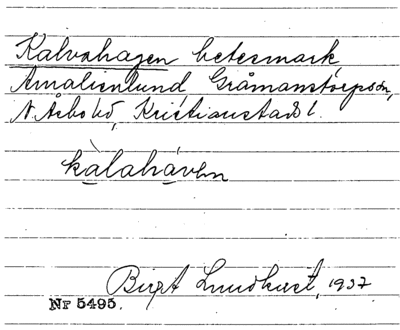 Kalvahagen betesmark
Amalienlund, Gråmanstorpssn,
N. Åsbo hd, Kristianstads l.
kàlahávən
Birgit Lundkvist, 1937
Nr 5495.